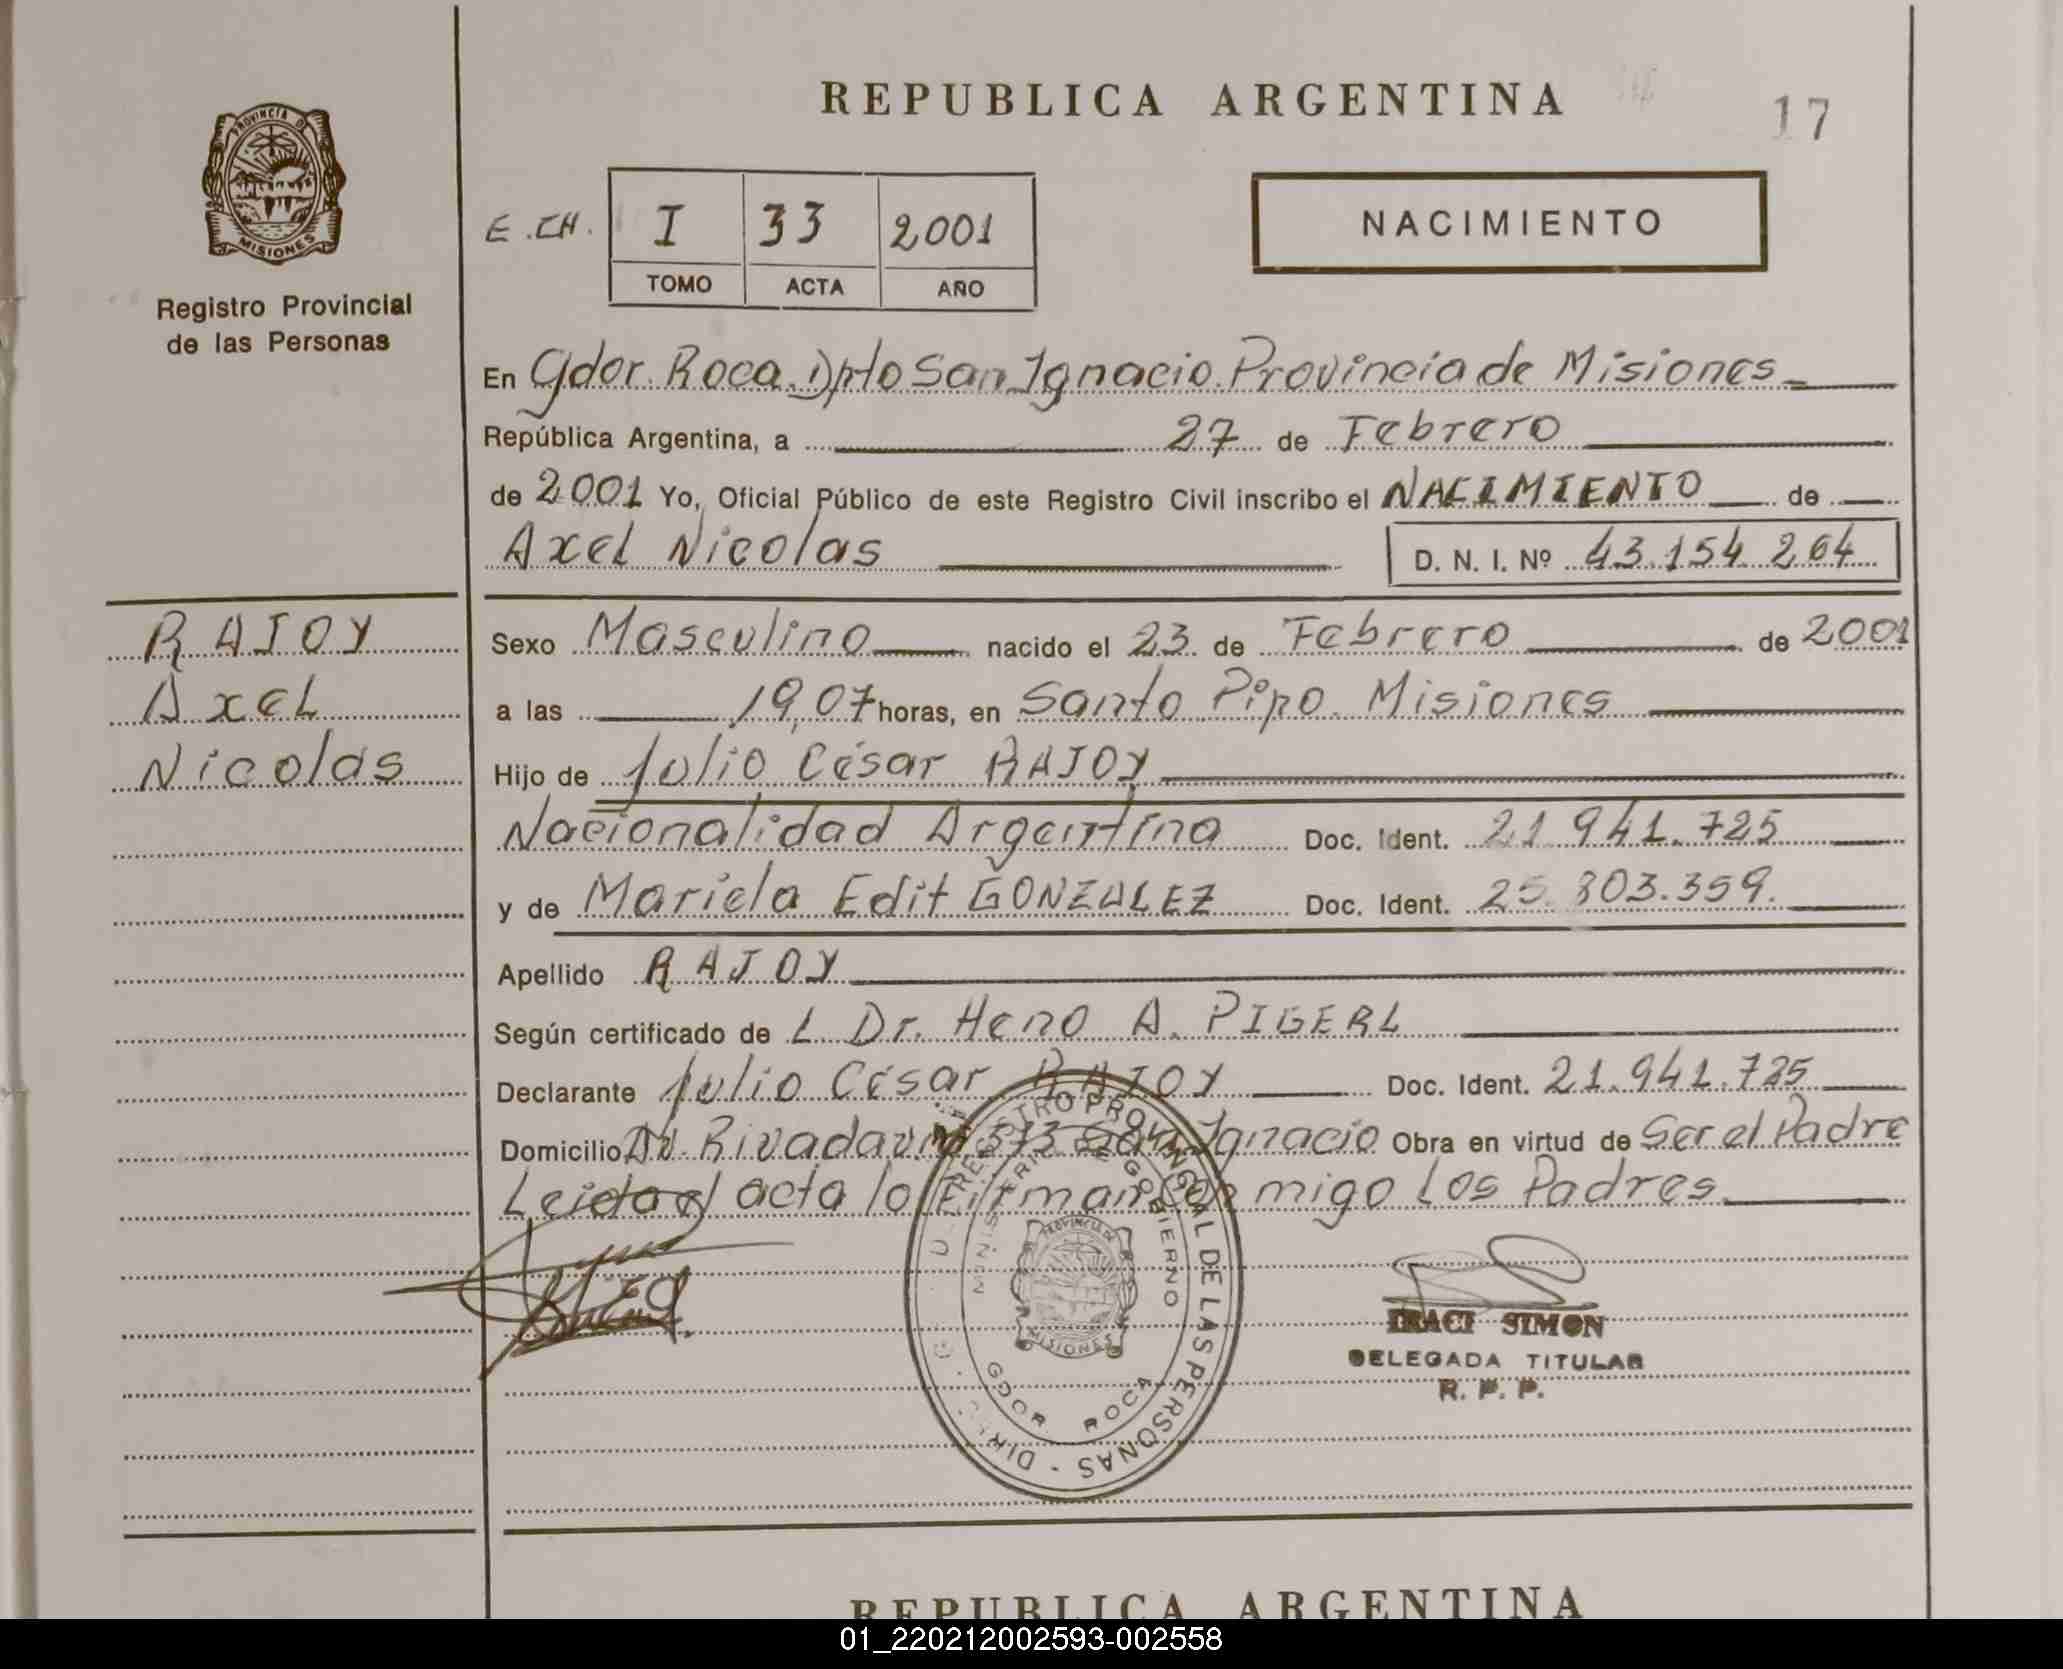 REPUBLICA ARGENTINA
17
PROVINCIA DE
MISIONES
Registro Provincial
de las Personas
E.CH. I 33 2001
TOMO ACTA AÑO
NACIMIENTO
En Gdor. Roca. Dpto San Ignacio. Provincia de Misiones
República Argentina, a 27 de Febrero
de 2001 Yo, Oficial Público de este Registro Civil inscribo el NACIMIENTO de
Axel Nicolas D. N. I. Nº 43.154.264
RAJOY
Axel
Nicolas
Sexo Masculino nacido el 23 de Febrero de 2001
a las 19,07 horas, en Santo Pipo. Misiones
Hijo de Julio César RAJOY
Nacionalidad Argentina Doc. Ident. 21.941.725
y de Mariela Edit GONZALEZ Doc. Ident. 25.303.359.
Apellido RAJOY
Según certificado de L Dr. Heno A. PIGERL
Declarante Julio César RAJOY Doc. Ident. 21.941.725
Domicilio Av. Rivadavia 373 San Ignacio Obra en virtud de Ser el Padre
Leida el acta lo Firman Conmigo Los Padres
REGISTRO PROVINCIAL DE LAS PERSONAS
MINISTERIO DE GOBIERNO
PROVINCIA DE
MISIONES
GDOR ROCA
IRACI SIMON
DELEGADA TITULAR
R. P. P.
REPUBLICA ARGENTINA
01_220212002593-002558